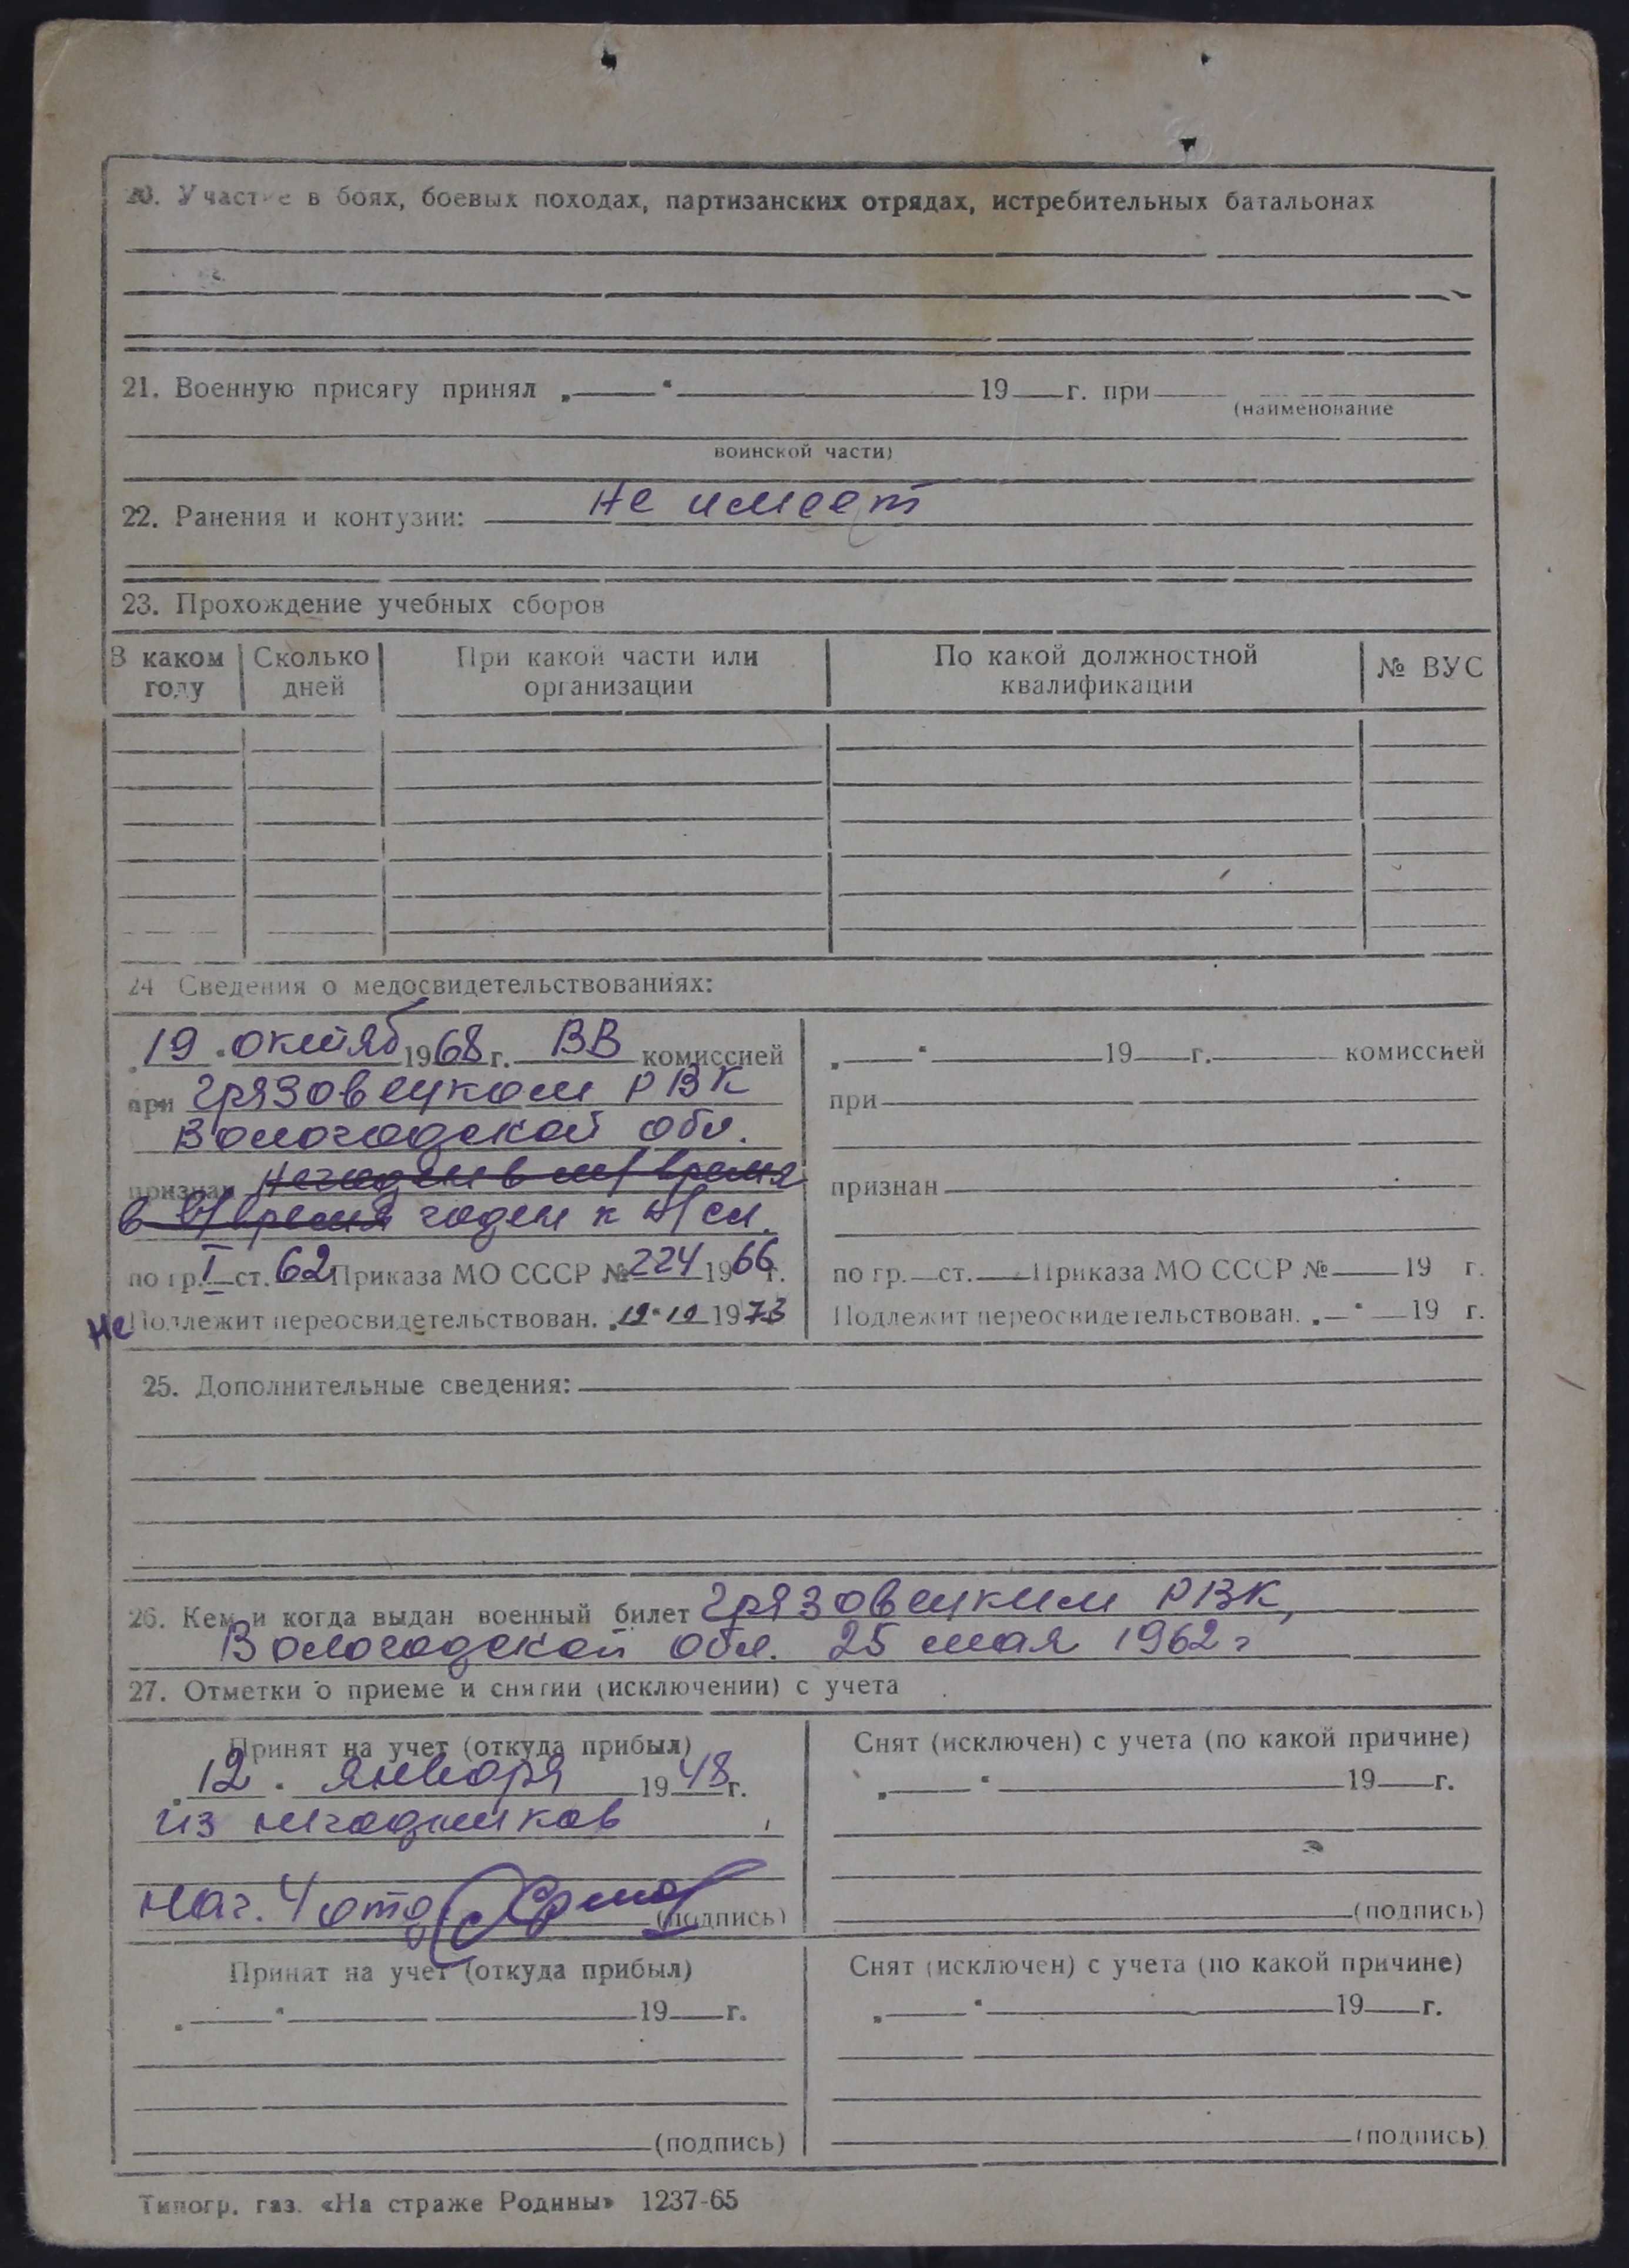 20. Участие в боях, боевых походах, партизанских отрядах, истребительных батальонах
21. Военную присягу принял „ “ 19 г. при
(наименование
воинской части)
22. Ранения и контузии: не имеет
23. Прохождение учебных сборов
В каком году
Сколько дней
При какой части или организации
По какой должностной квалификации
№ ВУС
24 Сведения о медосвидетельствованиях:
„19“ октяб 1968 г. ВВ комиссией
при Грязовецком РВК
Вологодской обл.
признан негоден в м/время
в в/время годен к н/сл.
по гр. I ст. 62 Приказа МО СССР № 224 1966 г.
Не Подлежит переосвидетельствован. „19“ 10 1973
„ “ 19 г. комиссией
при
признан
по гр. ст. Приказа МО СССР № 19 г.
Подлежит переосвидетельствован. „ “ 19 г.
25. Дополнительные сведения:
26. Кем и когда выдан военный билет Грязовецким РВК,
Вологодской обл. 25 мая 1962 г
27. Отметки о приеме и снятии (исключении) с учета
Принят на учет (откуда прибыл)
„12“ января 1948 г.
из негодников
Нач. 4 отд
(подпись)
Снят (исключен) с учета (по какой причине)
„ “ 19 г.
(подпись)
Принят на учет (откуда прибыл)
„ “ 19 г.
(подпись)
Снят (исключен) с учета (по какой причине)
„ “ 19 г.
(подпись)
Типогр. газ. «На страже Родины» 1237-65